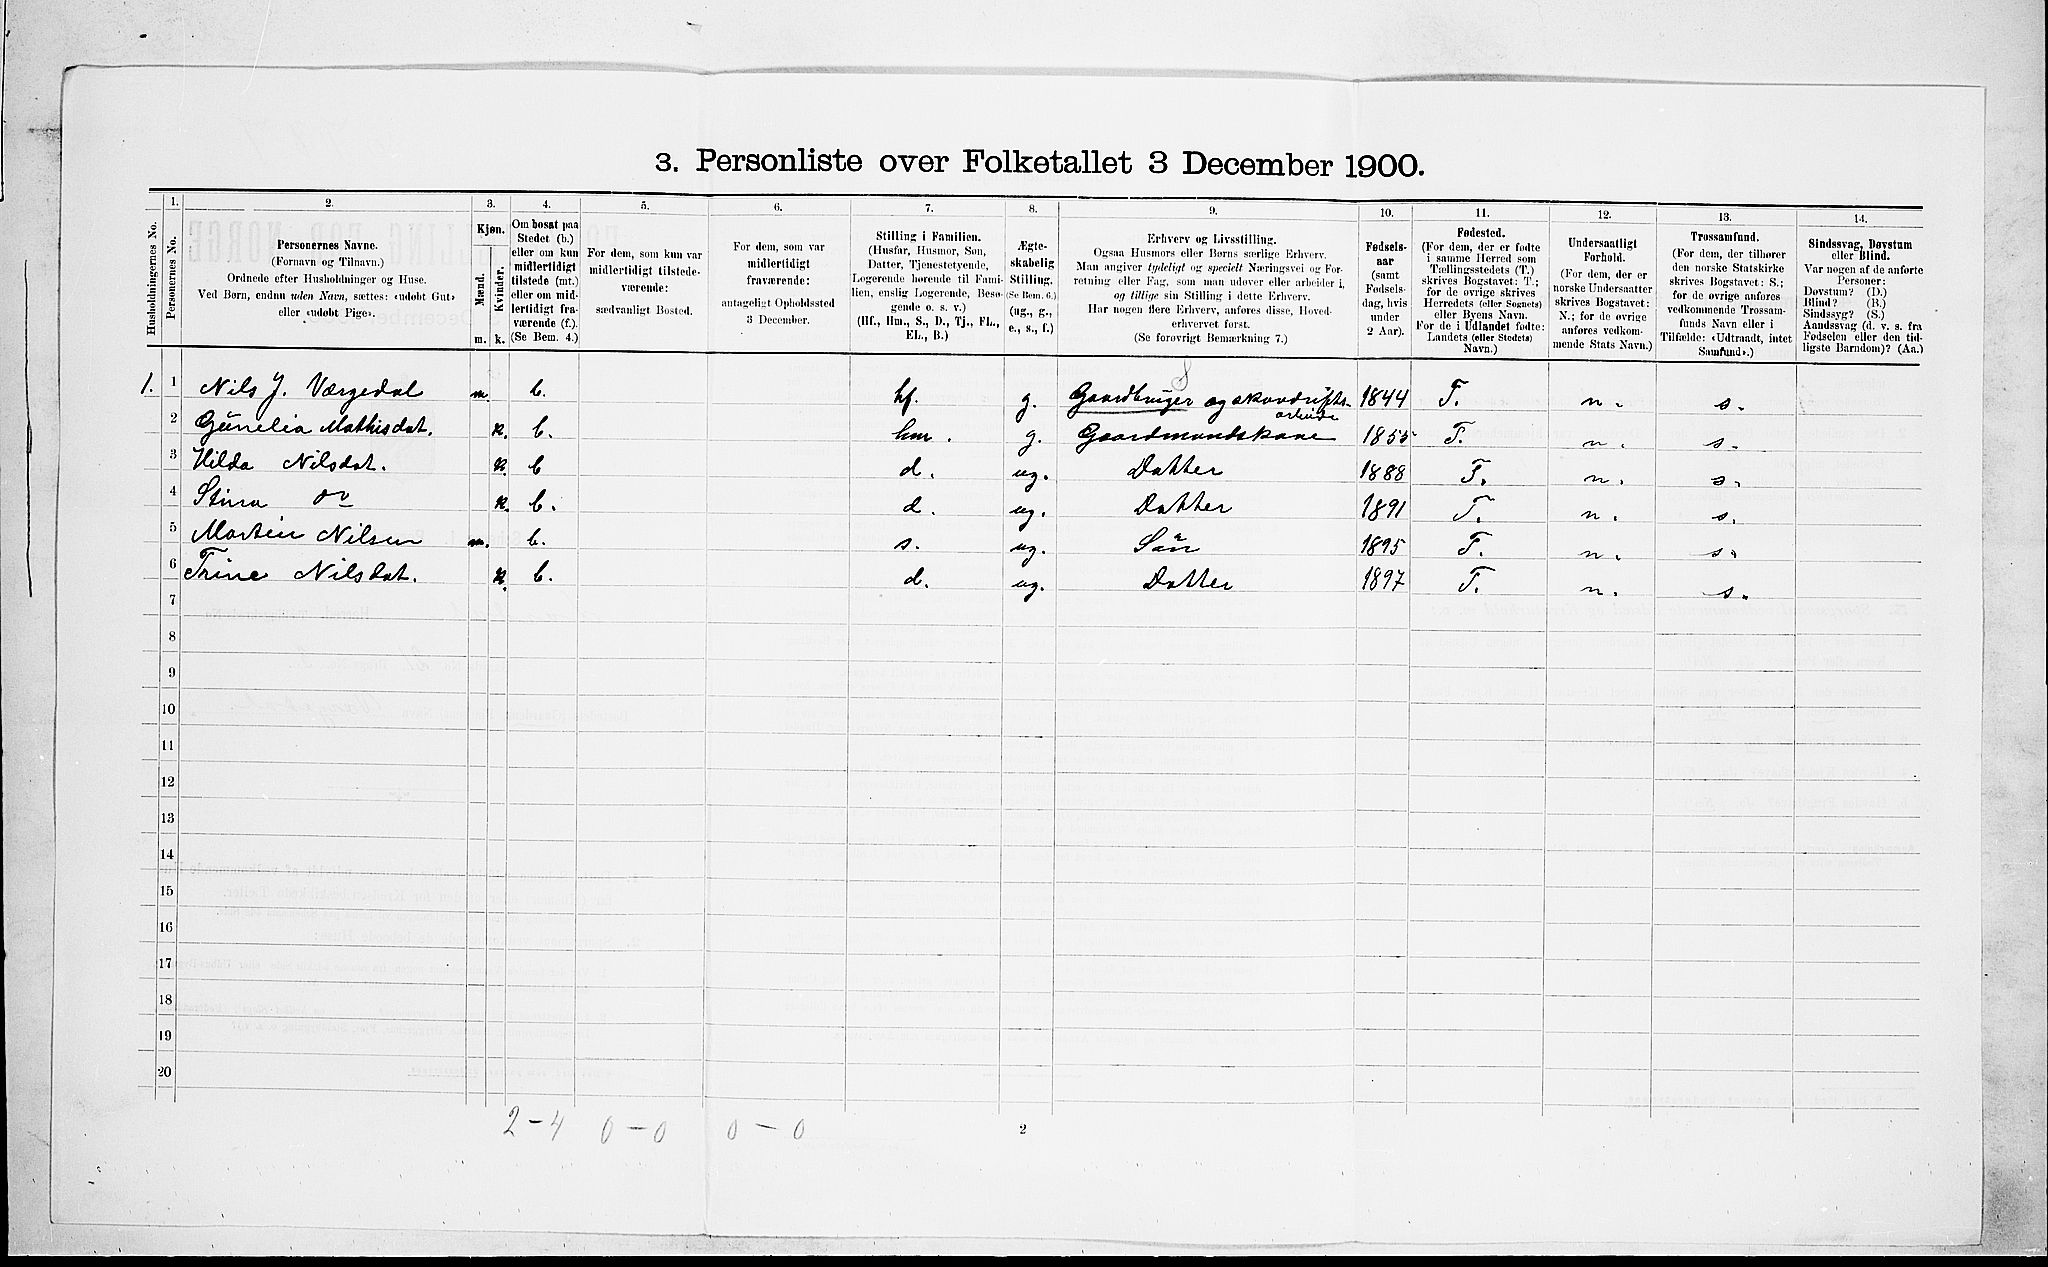 3. Personliste over Folketallet 3 December 1900.
1. 2. 3. 4. 5. 6. 7. 8. 9. 10. 11. 12. 13. 14.
Husholdningernes No.
Personernes No.
Personernes Navne.
(Fornavn og Tilnavn.)
Ordnede efter Husholdninger og Huse.
Ved Børn, endnu uden Navn, sættes: «udøbt Gut»
eller «udøbt Pige».
Kjøn.
Mænd.
Kvinder.
m. k.
Om bosat paa
Stedet (b.)
eller om kun
midlertidigt
tilstede (mt.)
eller om mid-
lertidigt fra-
værende (f.).
(Se Bem. 4.)
For dem, som kun var
midlertidigt tilstede-
værende:
sædvanligt Bosted.
For dem, som var
midlertidigt
fraværende:
antageligt Opholdssted
3 December.
Stilling i Familien.
(Husfar, Husmor, Søn,
Datter, Tjenestetyende,
Logerende hørende til Fami-
lien, enslig Logerende, Besø-
gende o. s. v.)
(Hf., Hm., S., D., Tj., FL.,
EL., B.)
Ægte-
skabelig
Stilling.
(Se Bem. 6.)
(ug., g.,
e., s., f.)
Erhverv og Livsstilling.
Ogsaa Husmors eller Børns særlige Erhverv.
Man angiver tydeligt og specielt Næringsvei og For-
retning eller Fag, som man udøver eller arbeider i,
og tillige sin Stilling i dette Erhverv.
Har nogen flere Erhverv, anføres disse, Hoved-
erhvervet først.
(Se forøvrigt Bemærkning 7.)
Fødsels-
aar
(samt
Fødsels-
dag, hvis
under
2 Aar).
Fødested.
(For dem, der er fødte
i samme Herred som
Tællingsstedets (T.)
skrives Bogstavet: T.;
for de øvrige skrives
Herredets (eller Sognets)
eller Byens Navn.
For de i Udlandet fødte:
Landets (eller Stedets)
Navn.)
Undersaatligt
Forhold.
(For dem, der er
norske Undersaatter
skrives Bogstavet:
N.; for de øvrige
anføres vedkom-
mende Stats Navn.)
Trossamfund.
(For dem, der tilhører
den norske Statskirke
skrives Bogstavet: S.;
for de øvrige anføres
vedkommende Trossam-
funds Navn eller i
Tilfælde: «Udtraadt, intet
Samfund».)
Sindssvag, Døvstum
eller Blind.
Var nogen af de anførte
Personer:
Døvstum? (D.)
Blind? (B.)
Sindssyg? (S.)
Aandssvag (d. v. s. fra
Fødselen eller den tid-
ligste Barndom)? (Aa.)
1. 1 Nils J. Værgedal m. b. hf. g. Gaardbruger og skovdrifts- arbeide 1844 T. n. s.
2 Gunelia Mathisdat. k. b. hm. g. Gaardmandskone 1855 T. n. s.
3 Hilda Nilsdat. k. b d. ug. Datter 1888 T. n. s.
4 Stina do k. b. d. ug. Datter 1891 T. n. s.
5 Martin Nilsen m. b. s. ug. Sön 1895 T. n. s.
6 Trine Nilsdat. k. b. d. ug. Datter 1897 T. n. s.
7
8
9
10
11
12
13
14
15
16
17
18
19
20
2-4 0-0 0-0
2